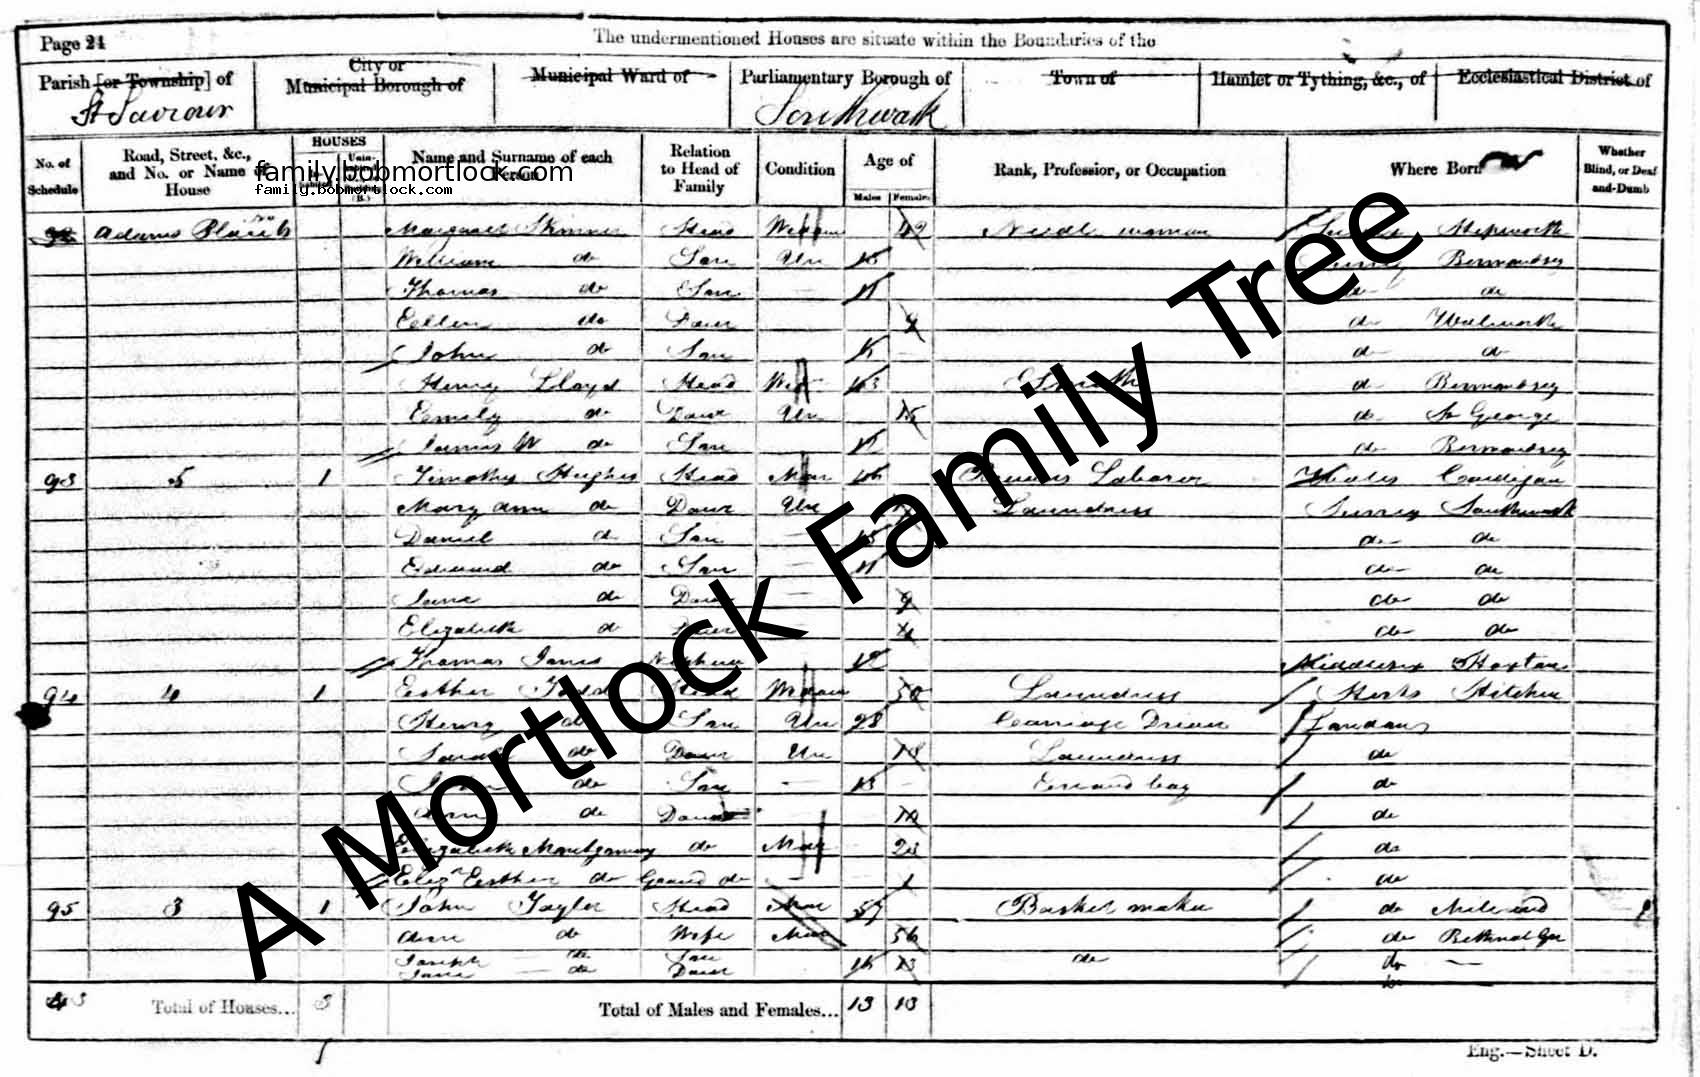 Page 24 The undermentioned Houses are situate within the Boundaries of the
Parish [or Township] of City or Municipal Borough of Municipal Ward of Parliamentary Borough of Town of Hamlet or Tything, &c., of Ecclesiastical District of
St Saviour Southwark
No. of Schedule Road, Street, &c., and No. or Name of House HOUSES Name and Surname of each Person Relation to Head of Family Condition Age of Males Females Rank, Profession, or Occupation Where Born Whether Blind, or Deaf-and-Dumb
family.bobmortlock.com
family.bobmortlock.com
Adams Place Margaret Skinner Head Widow 42 Needle woman
William do Son Un Surrey Bermondsey
Thomas do Son 11 do do
Eellen do Daur do Walworth
John do Son do do
Henry Lloyd Head 43 do Bermondsey
Emily do Daur Un 15 do St George
James W do Son 11 do Bermondsey
93 5 1 Timothy Hughes Head Mar 46 Laborer Wales Cardigan
Mary Ann do Daur Un Laundress Surrey Southwark
Daniel do Son 15 do do
Edward do Son 11 do do
Jane do Daur 9 do do
Elizabeth do Daur do do
Thomas James Nephew 12 Middlesex Hoxton
94 4 1 Esther Head Widow 50 Laundress Herts Hitchin
Henry do Son Un 28 Carriage Driver London
Sarah do Daur Un 18 Laundress do
do Son 13 Errand boy do
do Daur 10 do
Elizabeth Montgomery do Mar 23 do
Eliz Eesther do Grand do 1 do
95 3 1 John Taylor Head Mar 57 Basket maker do Mile end
Ann do Wife Mar 56 do Bethnal Gn
Joseph do Son 16 do do
Jane do Daur 13 do
Total of Houses... 3 Total of Males and Females... 13 13
Eng.—Sheet D.
A Mortlock Family Tree